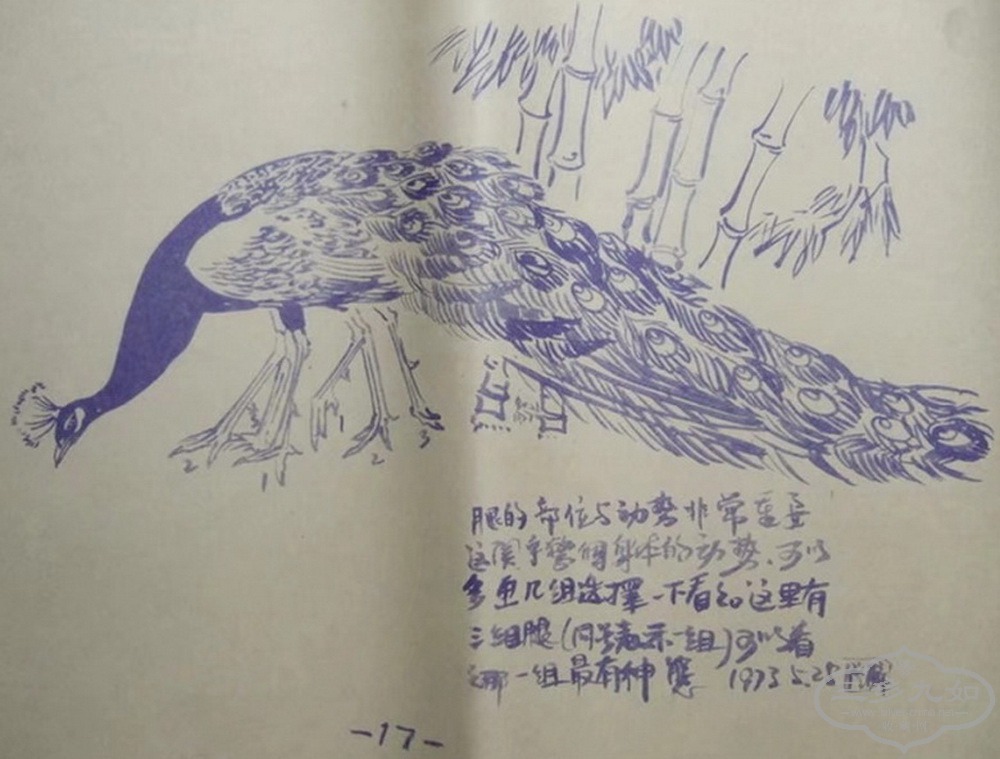 2
1
1
2
3
腿的部位与动势非常重要
这关乎整个身体的动势、可以
多画几组选择一下看如这里有
三组腿(同号表示一组)可以看
那一组最有神态 1973.5.25
-17-